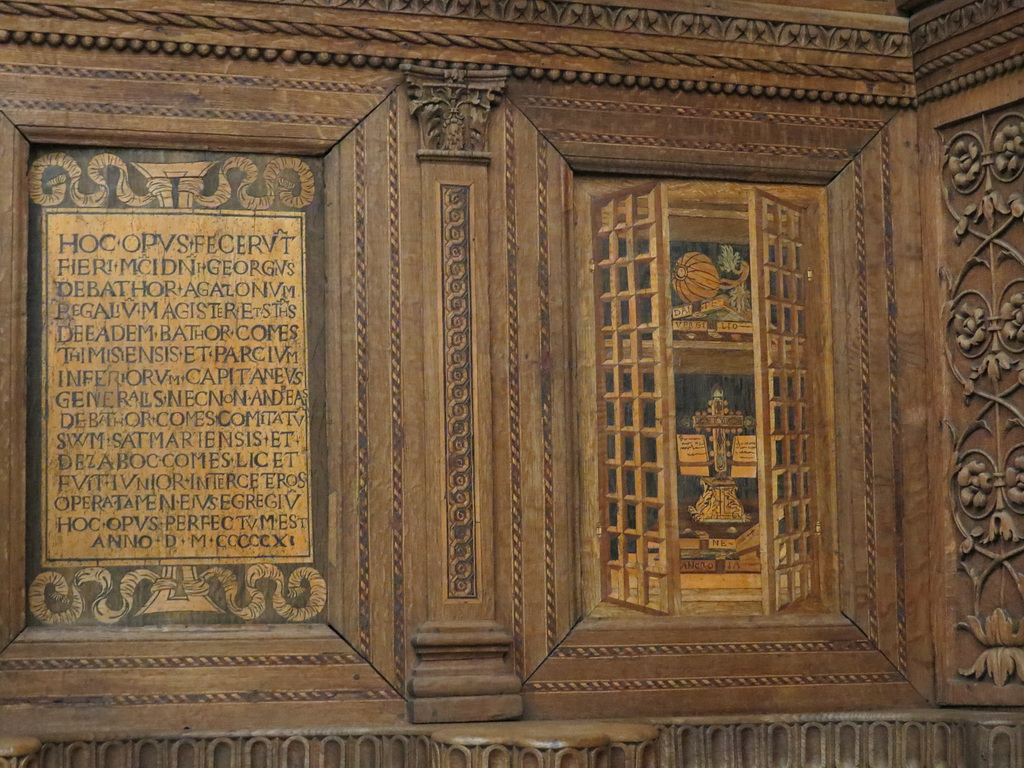 HOC·OPVS·FECERVT̃
FIERI·MC̃I·DNĨ·GEORGIVS
DEBATHOR·AGAZONVM
REGALIV̄·MAGISTER·ET·STHS
DEEADEM·BATHOR·COMES
THIMISIENSIS·ET·PARCIVM
INFERIORVM·CAPITANEVS
GENERALIS·NECNON·ANDEAS
DEBATHOR·COMES·COMITATV
SWM·SATMARIENSIS·ET·
DEZABOC·COMES·LICET
FVIT·IVNIOR·INTER·CETEROS
OPERA·TAMEN·EIVS·EGREGIV
HOC·OPVS·PERFECTVM·EST
ANNO·D·M·CCCCCXI
NE